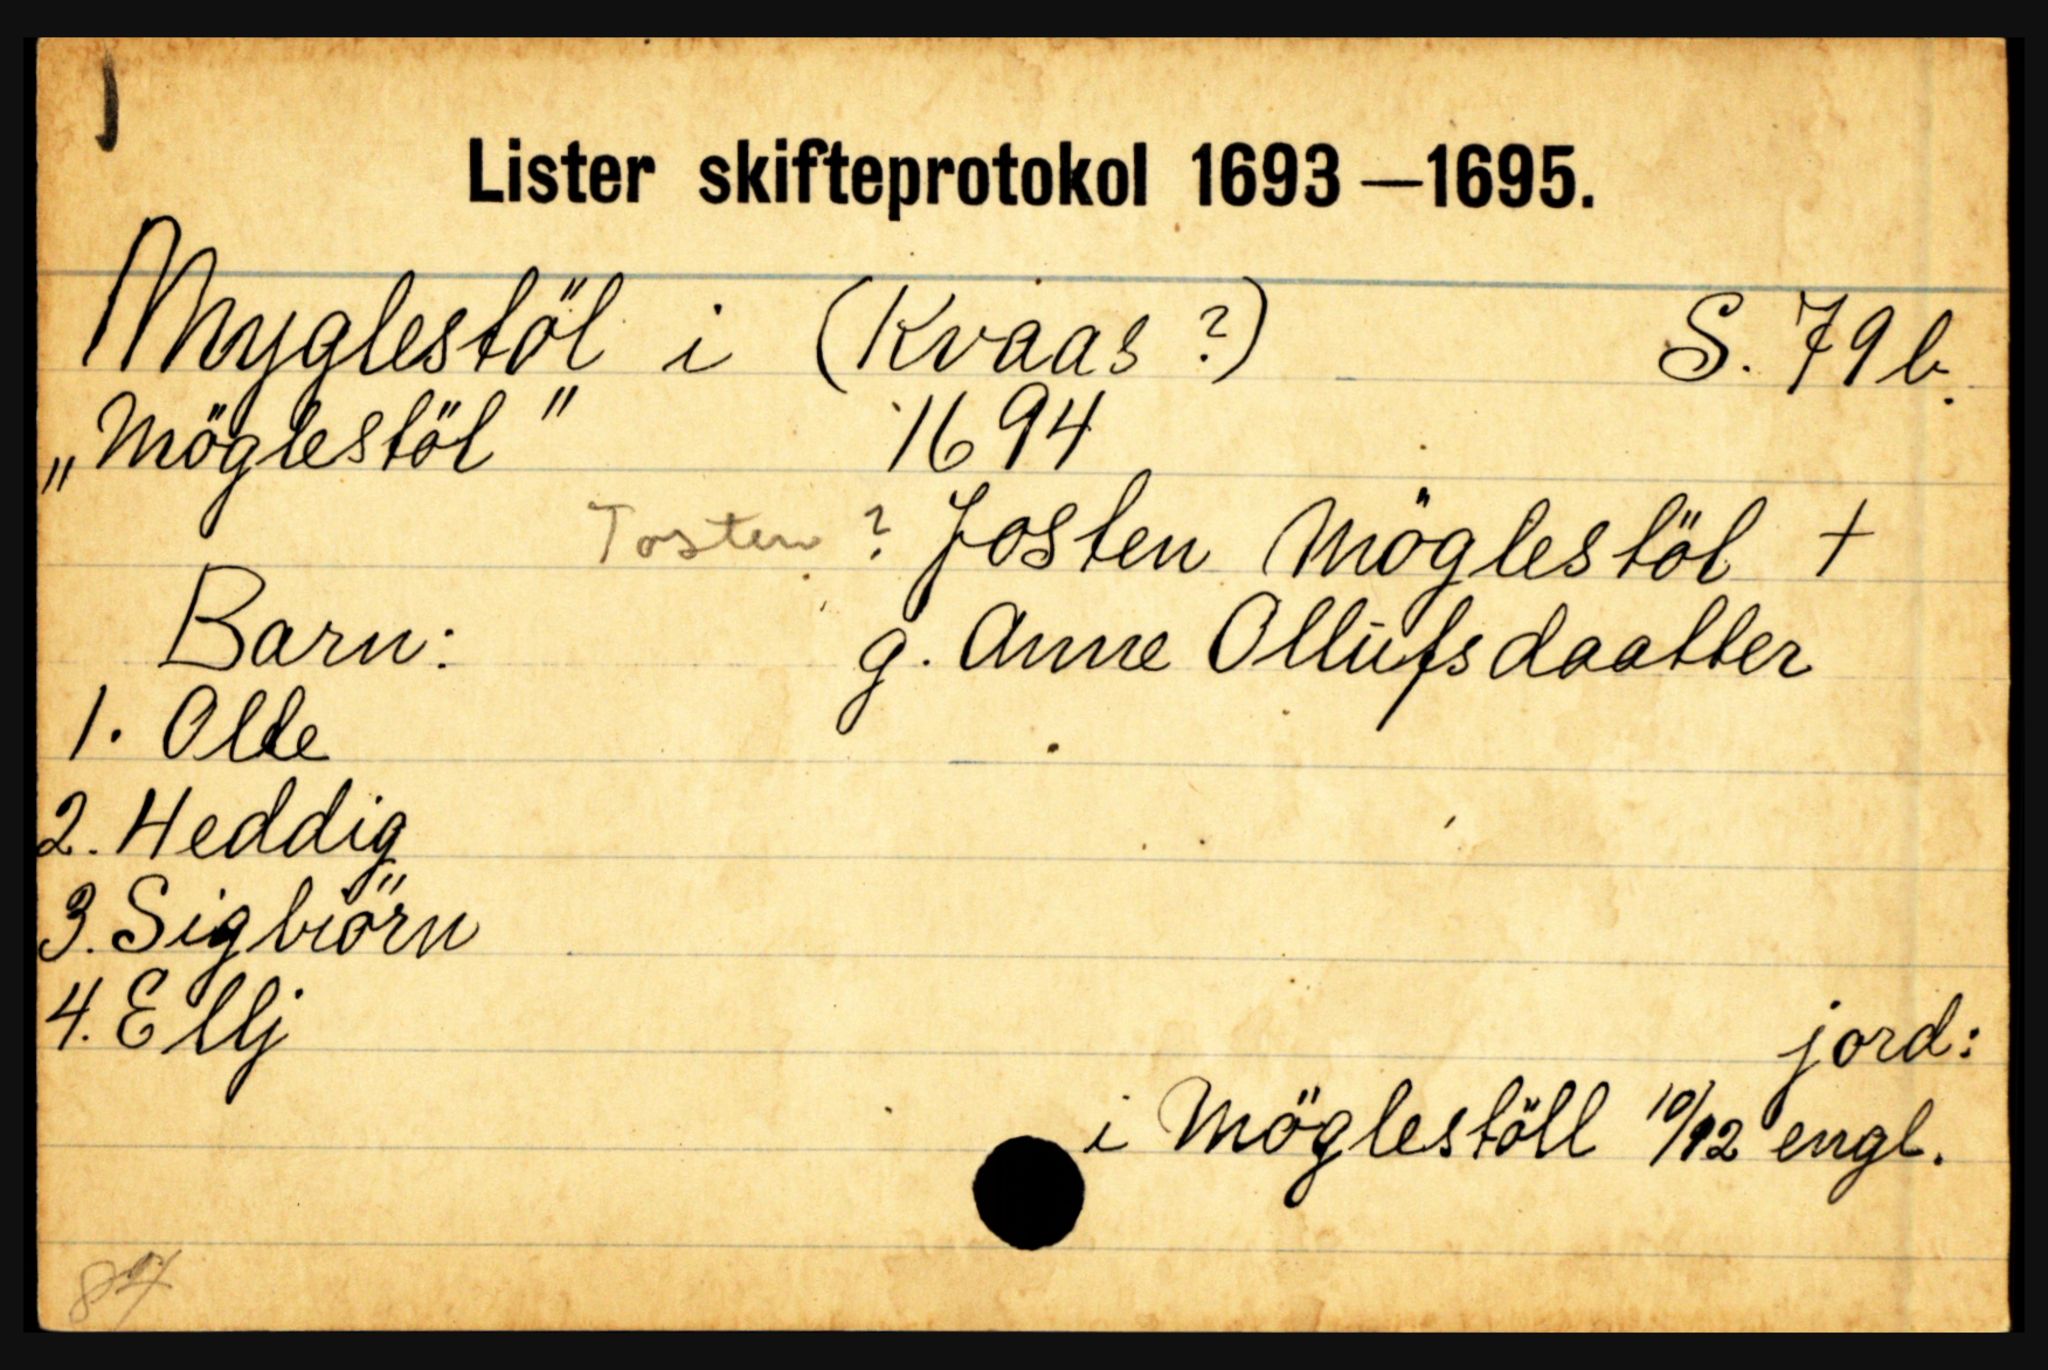 Lister skifteprotokol 1693—1695.
Myglestöl i (Kvaas?) S. 79 b.
„Möglestöl" 1694
Tosten ? Josten Möglestöl +
Barn: g. Anne Ollufsdaatter
1. Olle
2. Heddig
3. Sigbiörn
4. Ellj
jord:
i Möglestöll 10/12 engl.